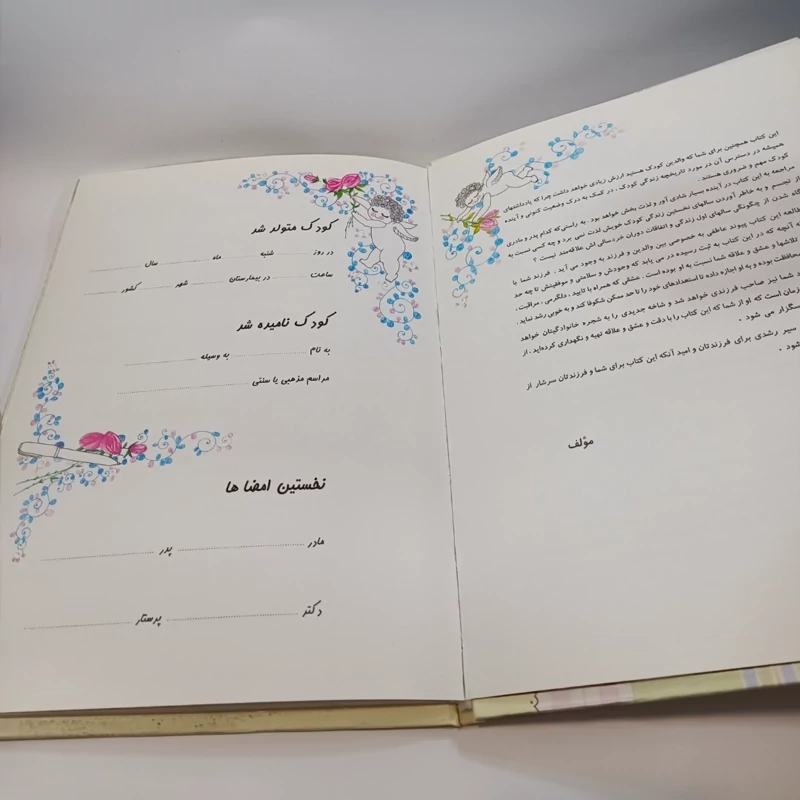 این کتاب همچنین برای شما که والدین کودک هستید ارزش زیادی خواهد داشت چرا که یادداشتهای
همیشه در دسترس آن در مورد تاریخچه زندگی کودک، در کمک به درک وضعیت کنونی و آینده
کودک مهم و ضروری هستند.
مراجعه به این کتاب در آینده بسیار شادی آور و لذت بخش خواهد بود. به راستی که کدام پدر و مادری
از تبسم و به خاطر آوردن سالهای نخستین زندگی کودک خویش لذت نمی برد و چه کسی نسبت به
گاه شدن از چگونگی سالهای اول زندگی و اتفاقات دوران خردسالی اش علاقه‌مند نیست ؟
طالعه این کتاب پیوند عاطفی به خصوصی بین والدین و فرزند به وجود می آید. فرزند شما با
ه آنچه که در این کتاب به ثبت رسیده در می یابد که وجودش و سلامتی و موفقیتش تا چه حد
تلاشها و عشق و علاقه شما نسبت به او بوده است. عشقی که همراه با تایید، دلگرمی، مراقبت،
محافظت بوده و به او اجازه داده تا استعدادهای خود را تا حد ممکن شکوفا کند و به خوبی رشد نماید.
د شما نیز صاحب فرزندی خواهد شد و شاخه جدیدی را به شجره خانوادگیتان خواهد
زمان است که او از شما که این کتاب را با دقت و عشق و علاقه تهیه و نگهداری کرده‌اید، از
سگزار می شود .
سیر رشدی برای فرزندتان و امید آنکه این کتاب برای شما و فرزندتان سرشار از
شود .
مؤلف
کودک متولد شد
در روز ............ شنبه ............ ماه ............ سال ............
ساعت ............ در بیمارستان ............ شهر ............ کشور ............
کودک نامیده شد
به نام ............ به وسیله ............
مراسم مذهبی یا سنتی ............
نخستین امضا ها
مادر ............ پدر ............
دکتر ............ پرستار ............